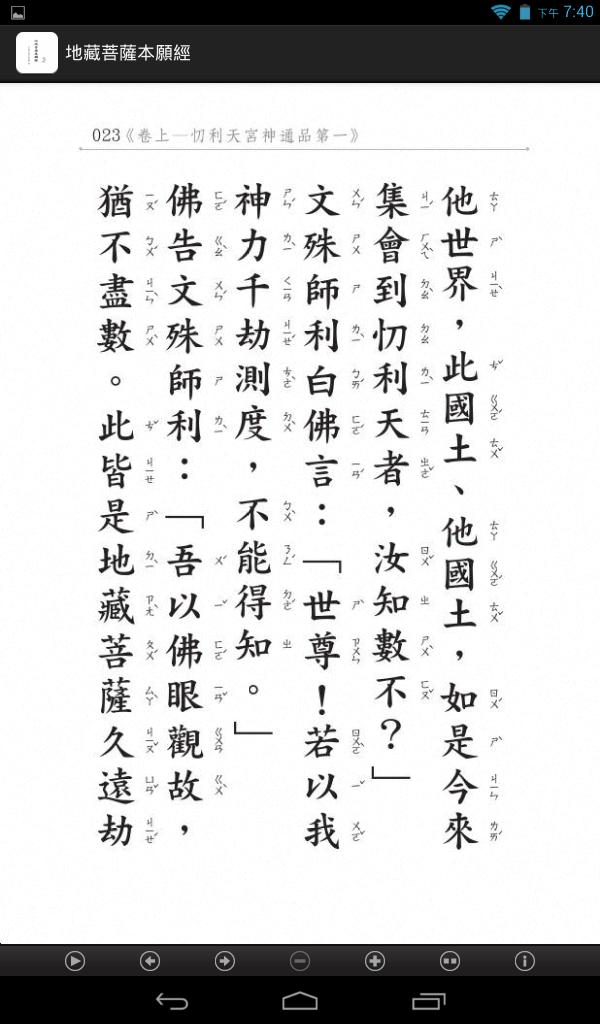 下午 7:40
地藏菩薩本願經
023《卷上─忉利天宮神通品第一》
他世界，此國土、他國土，如是今來
集會到忉利天者，汝知數不？」
文殊師利白佛言：「世尊！若以我
神力千劫測度，不能得知。」
佛告文殊師利：「吾以佛眼觀故，
猶不盡數。此皆是地藏菩薩久遠劫